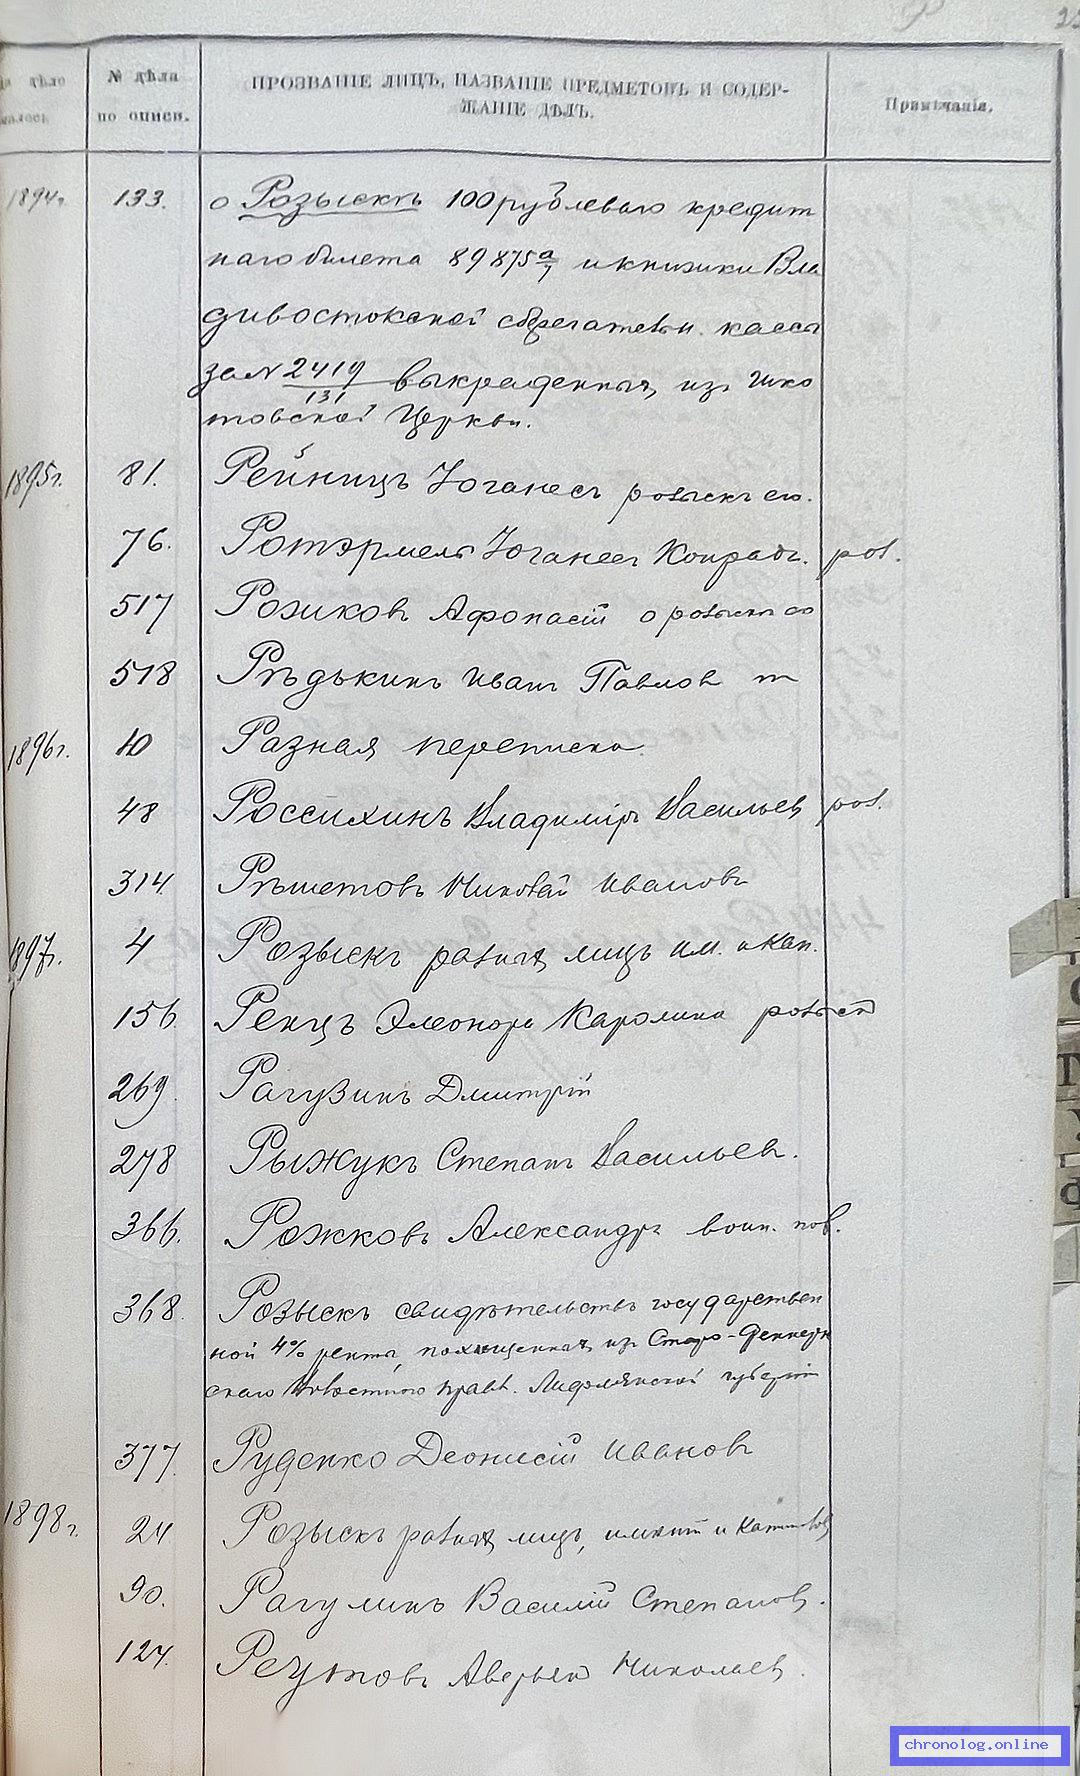 № дѣла
по описи.
ПРОЗВАНІЕ ЛИЦЪ, НАЗВАНІЕ ПРЕДМЕТОВЪ И СОДЕР-
ЖАНІЕ ДѢЛЪ.
Примѣчанія.
1894г. 133. о Розыскѣ 100 рублеваго кредит
наго билета 89875 а/7 и книжки Вла
дивостокской сберегательн. кассы
за № 2419/131 выкраденныя, из Шко
товской Церкви.
1895г. 81. Рейницъ Іоганесъ розыскъ его.
76. Ротэрмель Іоганесъ Конрадъ. роз.
517 Розиковъ Афонасій о розыскѣ его
518 Рѣдькинъ Иванъ Павловъ
1896г. 10 Разная переписка
48 Россихинъ Владиміръ Васильевъ роз.
314 Рѣшетовъ Николай Ивановъ
1897г. 4 Розыскъ разныхъ лицъ им. и кап.
156 Ренцъ Элеонора Каролина розыскъ
269. Рагузинъ Дмитрій
278 Рыжукъ Степанъ Васильев.
366. Рожковъ Александръ воин. пов.
368. Розыскъ свидѣтельствъ государствен
ной 4% ренты, похищенныя изъ Старо-
Волостного правл. губерніи
377. Руденко Деонисій Ивановъ
1898г. 24 Розыскъ разныхъ лицъ, имѣній и капиталовъ
90. Рагулинъ Василій Степановъ.
124. Реутовъ Аверьян Николаев.
chronolog.online